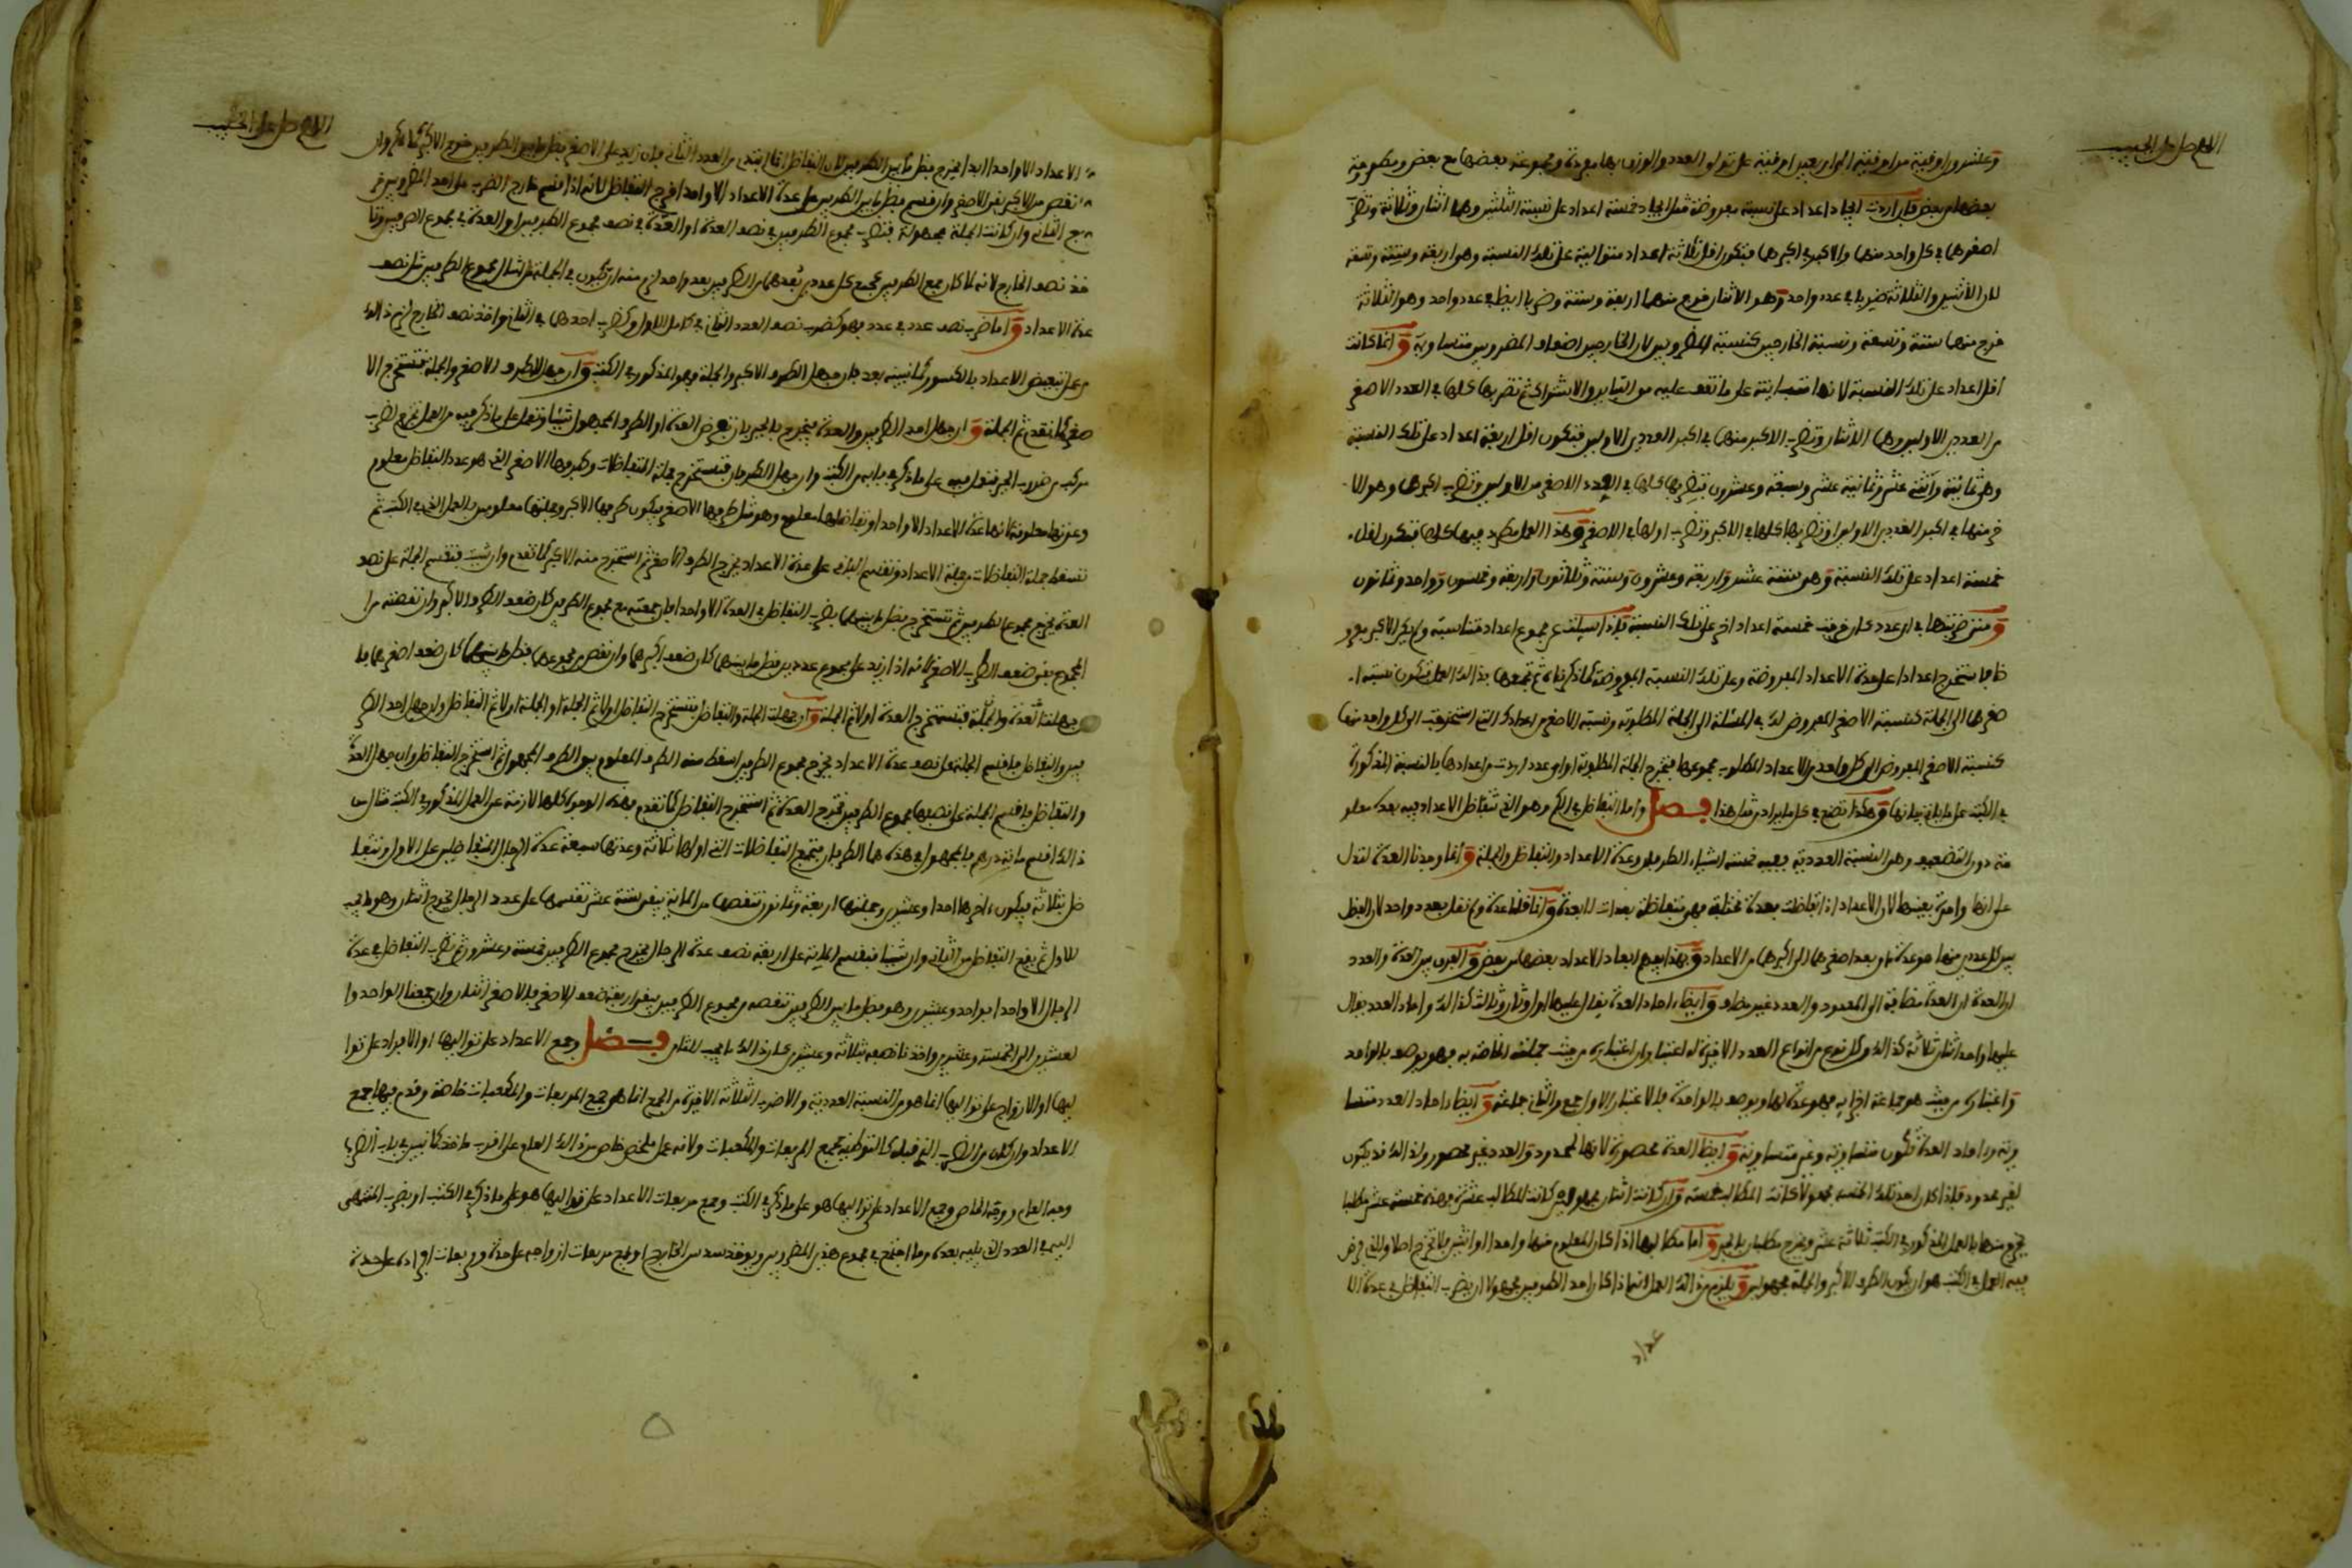 اللهم صل على الحبيب
وعشرون اوقية من اوقية الى اربعين اوقية على توالي العدد والوزن بها مفردة ومجموعة بعضها مع بعض ومطروحة
بعضها من بعض فان اردت ايجاد اعداد على نسبة مفروضة مثل ايجاد خمسة اعداد على نسبة الثلثين وهما اثنان وثلاثة وتضرب
اصغرهما في كل واحد منهما والاكبر في اكبرهما فيكون اقل ثلاثة اعداد متوالية على تلك النسبة وهو اربعة وستة وتسعة
لان الاثنين والثلاثة ضربا في عدد واحد وهو الاثنان فخرج منهما اربعة وستة وضربا ايضا في عدد واحد وهو الثلاثة
فخرج منهما ستة وتسعة ونسبة الخارجين كنسبة المضروبين لان الخارجين اضعاف المضروبين متساوية وانما كانت
اقل اعداد على تلك النسبة لانها متباينة على ما تقف عليه من التباين والاشتراك ثم تضربها كلها في العدد الاصغر
من العددين الاولين وهما الاثنان وتضرب الاكبر منها في اكبر العددين الاولين فتكون اقل اربعة اعداد على تلك النسبة
وهي ثمانية واثنى عشر وثمانية عشر وسبعة وعشرون تضربها كلها في العدد الاصغر من الاولين وتضرب اكبرها وهو الا
خر منها في اكبر العددين الاولين او تضربها كلها في الاكبر وتضرب اولها في الاصغر وهذا العمل مطرد فيها كلها فتكون اقل
خمسة اعداد على تلك النسبة وهو ستة عشر واربعة وعشرون وستة وثلاثون واربعة وخمسون وواحد وثمانون
ومتى ضربتها في اي عدد كان خرجت خمسة اعداد اخر على تلك النسبة فاذا سئلت عن مجموع اعداد متناسبة ولم يكن الاكبر مفرو
ضا فاستخرج اعدادا على عدة الاعداد المفروضة وعلى تلك النسبة المفروضة كما ذكرناه ثم تجمعها بذلك العمل فتكون نسبة ا
صغرها الى الجملة كنسبة الاصغر المفروض لك في المسئلة الى الجملة المطلوبة ونسبة الاصغر من اعدادك التي استخرجت الى كل واحد منها
كنسبة الاصغر المفروض الى كل واحد من الاعداد المطلوب مجموعها فتخرج الجملة المطلوبة او اي عدد اردت من اعدادها بالنسبة المذكورة
في الكتب على ما ياتي بيانها وهكذا تصنع في كل ما يراد من مثل هذا فصل واما التفاضل في الكم وهو الذي تتفاضل الاعداد فيه بعدة معلو
مة دون التضعيف وهي النسبة العددية ففيه خمسة اشياء الطرفان وعدة الاعداد والتفاضل والجملة وانما وحدنا العدة لتدل
على انها واحدة بعينها لان الاعداد اذا تفاضلت بعدة مختلفة فهي متفاضلة بعدات لا بعدة وانما قلنا عدة ولم نقل بعدد واحد لان الفضل
بين كل عددين منها هو عدة ما يعد اصغرهما الى اكبرهما من الاعداد وبهذا يفهم ابعاد الاعداد بعضها من بعض والفرق بين العدة والعدد
ان العدة مضافة الى المعدود والعدد غير مضاف وايضا احاد العدة يقال عليها اول وثان وثالث كذلك واحاد العدد يقال
عليها واحد اثنان ثلاثة كذلك وكل نوع من انواع العدد الاخيرة له اعتباران اعتباره من حيث جملته الخاصة به فهو يوصف بالواحد
واعتباره من حيث هو جماعة اجزائه فهو عدة لها ويوصف بالواحدة فالاعتبار الاول جمع والثاني جماعة وايضا احاد العدد متسا
وية واحاد العدة تكون متساوية وغير متساوية وايضا العدة محصورة لانها لمحدود والعدد غير محصور ولذلك قد يكون
لغير محدود فاذا كان احد تلك الخمسة مجهولا كانت المطالب خمسة وان كانت اثنان مجهولين كانت المطالب عشرة فهذه خمسة عشر مطلبا
يخرج منها بالعمل المذكور في الكتب ثلاثة عشر ويخرج مطلبان بالجبر واما مطالبها اذا كان المعلوم منها واحدا او اثنين فلا تخرج اصلا والذي فرض
فيه العمل في الكتب هو ان يكون الطرف الاكبر والجملة مجهولين ويلزم من ذلك العمل انما اذا كان احد الطرفين مجهولا ان يضرب التفاضل في عدة الا
عداد
اللهم صل على الحبيب
الاعداد الا واحدا ابدا فيخرج فضل ما بين الطرفين لان التفاضل انما ابتدئ من العدد الثاني فان زيد على الاصغر فضل ما بين الطرفين خرج الاكبر كما ذكر وان
نقص من الاكبر بقي الاصغر وان قسم فضل ما بين الطرفين على عدة الاعداد الا واحدا خرج التفاضل لانه اذا قسم خارج الضرب على احد المضروبين خر
ج الثاني وان كانت الجملة مجهولة فتضرب مجموع الطرفين في نصف العدة او العدة في نصف مجموع الطرفين او العدة في مجموع الطرفين وتا
خذ نصف الخارج لانه لما كان جمع الطرفين كجمع كل عددين بعدهما من الطرفين بعد واحد لزم منه ان يكون في الجملة امثال مجموع الطرفين مثل نصف
عدة الاعداد واما ضرب نصف عدد في عدد فهو كضرب نصف العدد الثاني في كامل الاول وكضرب احدهما في الثاني واخذ نصف الخارج لزم ذلك
من علم تبعيض الاعداد بالكسور كما نبينه بعد فان جهل الطرف الاكبر والجملة فهو المذكور في الكتب وان جهل الطرف الاصغر والجملة فتستخرج الا
صغر كما تقدم ثم الجملة وان جهل احد الطرفين والعدة فيخرج بالجبر بان تفرض العدة او الطرف المجهول شيئا وتعمل على ما ذكر فيه من العمل يخرج لضرب
مركب من ضروب الجبر فتعمل فيه على ما ذكر في بابه من الكتب وان جهل الطرفان فتستخرج جملة التفاضلات وطرفها الاصغر الذي هو عدد التفاضل معلوم
وعدتها معلومة لانها عدة الاعداد الا واحدا وتفاضلها معلوم وهو مثل طرفها الاصغر فيكون طرفها الاكبر وجملتها معلومين بالعمل الذي في الكتب ثم
تسقط جملة التفاضلات من جملة الاعداد وتقسم الباقي على عدة الاعداد يخرج الطرف الاصغر ثم استخرج منه الاكبر كما تقدم وان شئت فتقسم الجملة على نصف
العدة يخرج مجموع الطرفين ثم تستخرج فضل ما بينهما بضرب التفاضل في العدة الا واحدا فان جمعته مع مجموع الطرفين كان ضعف الطرف الاكبر وان نقصته من ا
لمجموع بقي ضعف الطرف الاصغر لانه اذا زيد على مجموع عددين فضل ما بينهما كان ضعف اكبرهما وان نقص من مجموعهما فضل ما بينهما كان ضعف اصغرهما فا
ن جهلت العدة والجملة فتستخرج العدة اولا ثم الجملة وان جهلت الجملة والتفاضل فتستخرج التفاضل اولا ثم الجملة او الجملة اولا ثم التفاضل وان جهل احد الطر
فين والتفاضل فاقسم الجملة على نصف عدة الاعداد يخرج مجموع الطرفين اسقط منه الطرف المعلوم يبق الطرف المجهول ثم استخرج التفاضل وان جهل العدة
والتفاضل فاقسم الجملة على نصف مجموع الطرفين فتخرج العدة ثم استخرج التفاضل كما تقدم وهذه الوجوه كلها لازمة عن العمل المذكور في الكتب مثال من
ذلك اقسم مائة درهم فالمجهول في هذه هما الطرفان فتجمع التفاضلات التي اولها ثلاثة وعدتها سبعة عدة الرجال المتفاضلين على الاول وتتفا
ضل بثلاثة فيكون اخرها احدا وعشرين وجملتها اربعة وثمانون تنقصها من المائة يبقى ستة عشر تقسمها على عدد الرجال يخرج اثنان وهو ما يجب
للاول ثم يقع التفاضل من الثاني وان شئنا فنقسم المائة على اربعة نصف عدة الرجال يخرج مجموع الطرفين خمسة وعشرون ثم نضرب التفاضل في عدة
الرجال الا واحدا بواحد وعشرين وهو فضل ما بين الطرفين تنقصه من مجموع الطرفين يبقى اربعة ضعف الاصغر فالاصغر اثنان وان جمعنا الواحد وا
لعشرين الى الخمسة وعشرين واخذنا نصفه ثلاثة وعشرين كان ذلك ما يجب للثامن فصل وجمع الاعداد على تواليها او الافراد على توا
ليها او الازواج على تواليها انما هو من النسبة العددية والاضرب الثلاثة الاخيرة من الجمع انما هو جمع المربعات والمكعبات خاصة وقدم فيها جمع
الاعداد وان كان من الضرب الذي قبله كالتوطئة لجمع المربعات والمكعبات ولانه عمل ملخص خاص من ذلك العام على اقرب ماخذ كما نبين في باب الضرب
وجه العام ووجه الخاص وجمع الاعداد على تواليها هو على ما ذكر في الكتب وجمع مربعات الاعداد على تواليها هو على ما ذكر في الكتب او يضرب المنتهى
اليه في العدد الذي يليه بعده وما اجتمع في مجموع هذين المضروبين ويوخذ سدس الخارج او جمع مربعات ازواجه على حدة ومربعات افراده على حدة